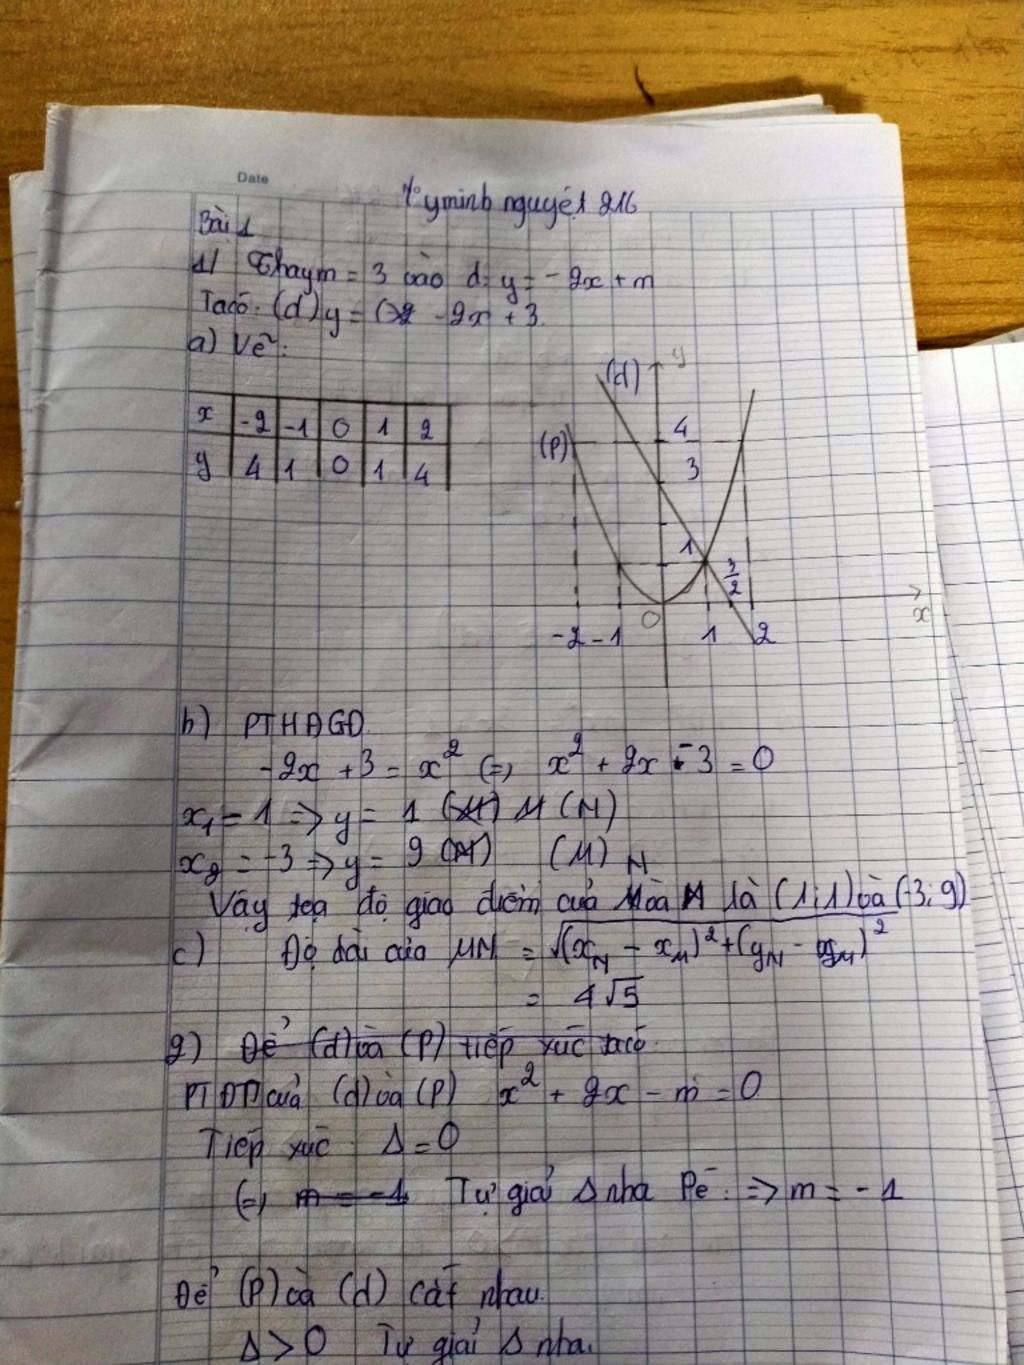 Date
yminh nguyệt 216
Bài 1
1) Thay m = 3 vào d: y = -2x + m
Ta có: (d) y = -2x + 3.
a) Vẽ:
x -2 -1 0 1 2
y 4 1 0 1 4
(d) y
(P) 4
3
1 3/2
O x
-2 -1 1 2
b) PTHĐGĐ
-2x + 3 = x² (=) x² + 2x - 3 = 0
x₁ = 1 => y = 1 (N)
x₂ = -3 => y = 9 (M)
Vậy tọa độ giao điểm của M và N là (1;1) và (-3;9)
c) Độ dài của MN = √(x_N - x_M)² + (y_N - y_M)²
= 4√5
2) Để (d) và (P) tiếp xúc ta có
của (d) và (P) x² + 2x - m = 0
Tiếp xúc Δ = 0
(=) m = -1 Tự giải Δ nha Pé. => m = -1
Để (P) và (d) cắt nhau.
Δ > 0 Tự giải Δ nha.